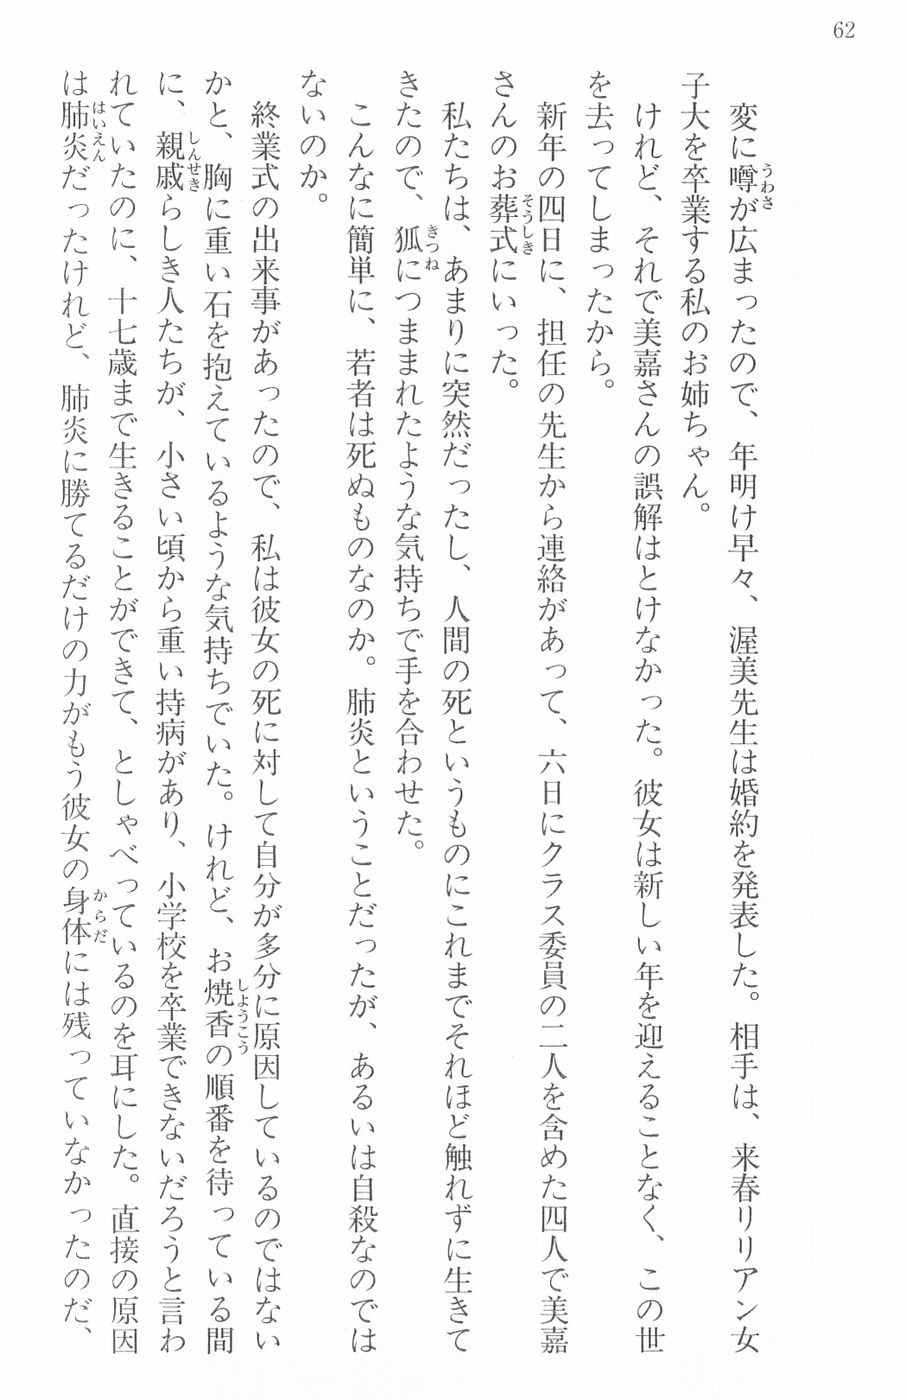 62
変に噂が広まったので、年明け早々、渥美先生は婚約を発表した。相手は、来春リリアン女
子大を卒業する私のお姉ちゃん。
けれど、それで美嘉さんの誤解はとけなかった。彼女は新しい年を迎えることなく、この世
を去ってしまったから。
新年の四日に、担任の先生から連絡があって、六日にクラス委員の二人を含めた四人で美嘉
さんのお葬式にいった。
私たちは、あまりに突然だったし、人間の死というものにこれまでそれほど触れずに生きて
きたので、狐につままれたような気持ちで手を合わせた。
こんなに簡単に、若者は死ぬものなのか。肺炎ということだったが、あるいは自殺なのでは
ないのか。
終業式の出来事があったので、私は彼女の死に対して自分が多分に原因しているのではない
かと、胸に重い石を抱えているような気持ちでいた。けれど、お焼香の順番を待っている間
に、親戚らしき人たちが、小さい頃から重い持病があり、小学校を卒業できないだろうと言わ
れていたのに、十七歳まで生きることができて、としゃべっているのを耳にした。直接の原因
は肺炎だったけれど、肺炎に勝てるだけの力がもう彼女の身体には残っていなかったのだ、